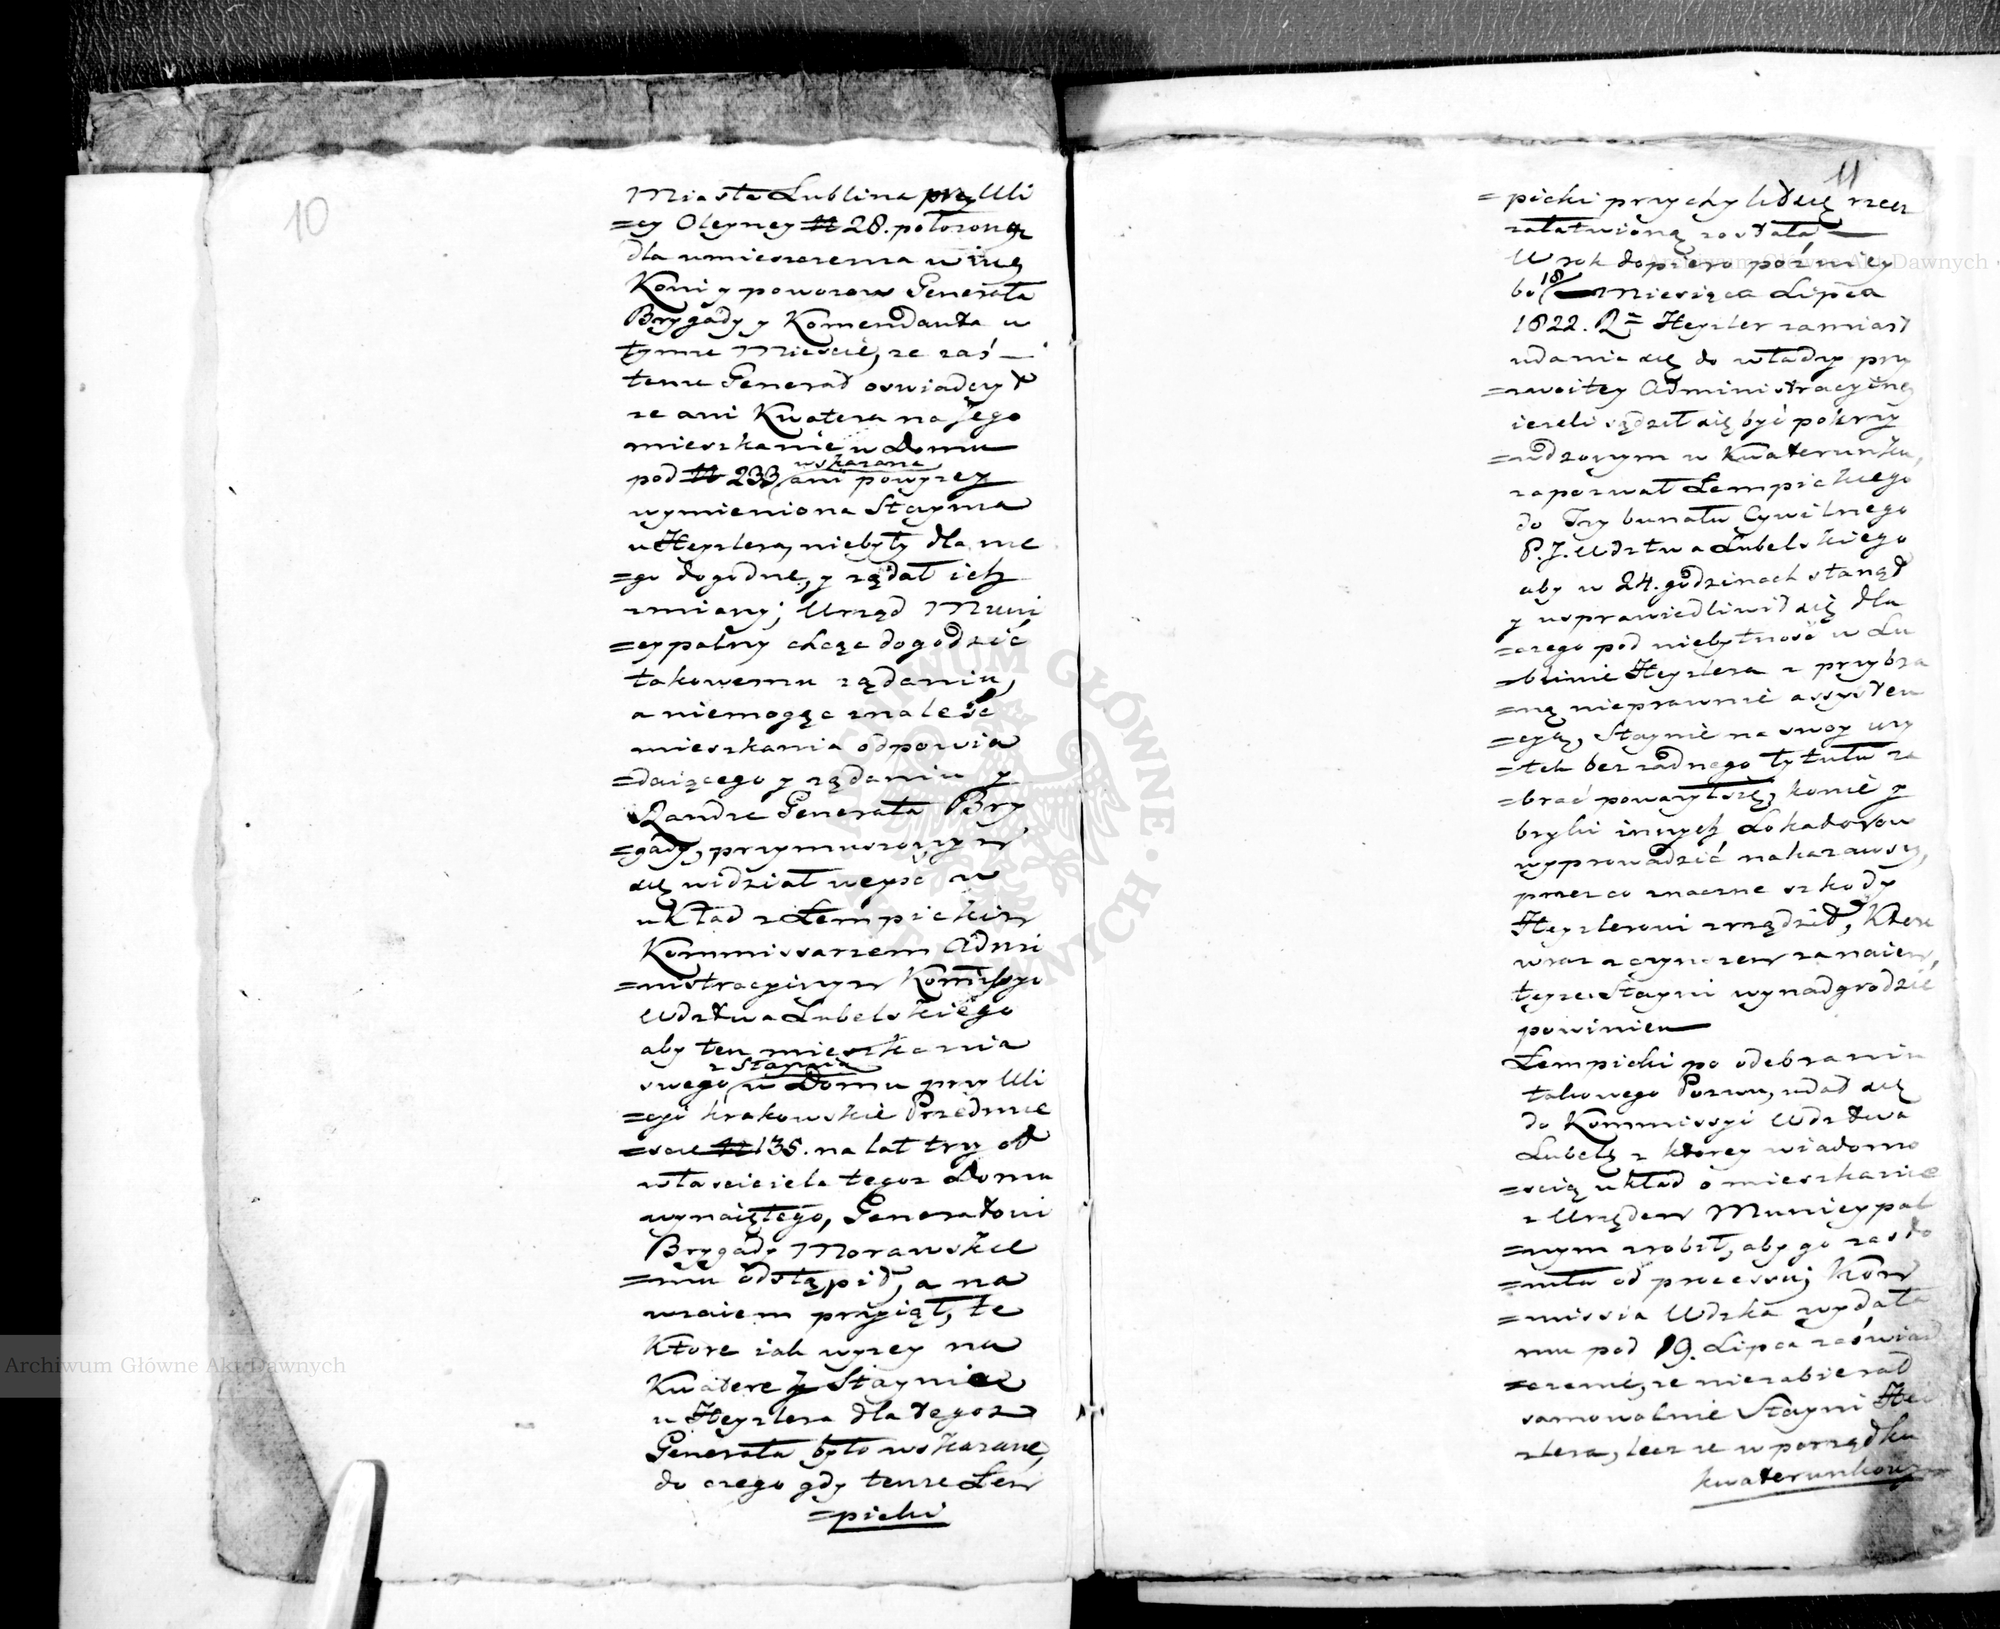 10
Miasta Lublina przy Uli
=cy Oleyney N 28. położoną
dla umieszczenia w niey
Koni y powozow Generała
Brygady y Komendanta w
tymże Mieście, że zaś —
tenże Generał oswiadczył
że ani Kwatera na Jego
mieszkanie w Domu
wskazana
pod N 233 ani powyżey
wymieniona Staynia
u Heyzlera, niebyły dla nie
=go dogodne, y rządał ich
zmiany; Urząd Muni
=cypalny chcąc dogodzić
takowemu rządaniu,
a niemogąc znaleść
mieszkania odpowia
=daiącego y rządaniu y
Randze Generała Bry
=gady, przymuszonym
się widział weyść w
układ z Łempickim
Kommissarzem Admi
=nistracyinym Kommissyi
Wdztwa Lubelskiego
aby ten mieszkania
z Staynią
swego w Domu przy Uli
=cyi Krakowskie Przedmie
=scie N 135. na lat trzy od
własciciela tegoż Domu
wynaiętego, Generałowi
Brygady Morawskie
=mu odstąpił, a na
wzaiem przyiął, te
które iak wyżey na
Kwaterę y Staynię
u Heyzlera dla tegoż
Generała było wskazane,
do czego gdy tenże Łem
=picki
11
=picki przychylił się rzecz
załatwioną została —
W rok dopiero pózniey
bo 18 Miesiąca Lipca
1822. R= Heyzler zamiast
udania się do władzy przy
=zwoitey Administracyiney
ieżeli sądził się być pokrzy
=wdzonym w Kwaterunku,
zapozwał Łempickiego
do Trybunału Cywilnego
P. J. Wdztwa Lubelskiego
aby w 24. godzinach stanął
y usprawiedliwił się dla
=czego pod niebytność w Lu
=blinie Heyzlera z przybra
=ną nieprawnie assysten
=cyą, Staynię na swoy uży
=tek bez żadnego tytułu za
=brać poważył się, konie y
bryki innych Lokatorow
wyprowadzić nakazawszy,
przez co znaczne szkody
Heyzlerowi zrządził, które
wraz z czynszem za naiem,
teyże Stayni wynadgrodzić
powinien —
Łempicki po odebraniu
takowego Pozwu, udał się
do Kommissyi Wdztwa
Lubelg z którey wiadomo
=scią układ o mieszkanie
z Urzędem Municypal
=nym zrobił, aby go zasło
=niła od processu; Kom
=missia Wdzka wydała
mu pod 19. Lipca zaświad
=czenie, że niezabierał
samowolnie Stayni Hey
zlera, lecz że w porządku
kwaterunkowym
Archiwum Główne Akt Dawnych
Archiwum Główne Akt Dawnych
ARCHIWUM GŁÓWNE AKT DAWNYCH